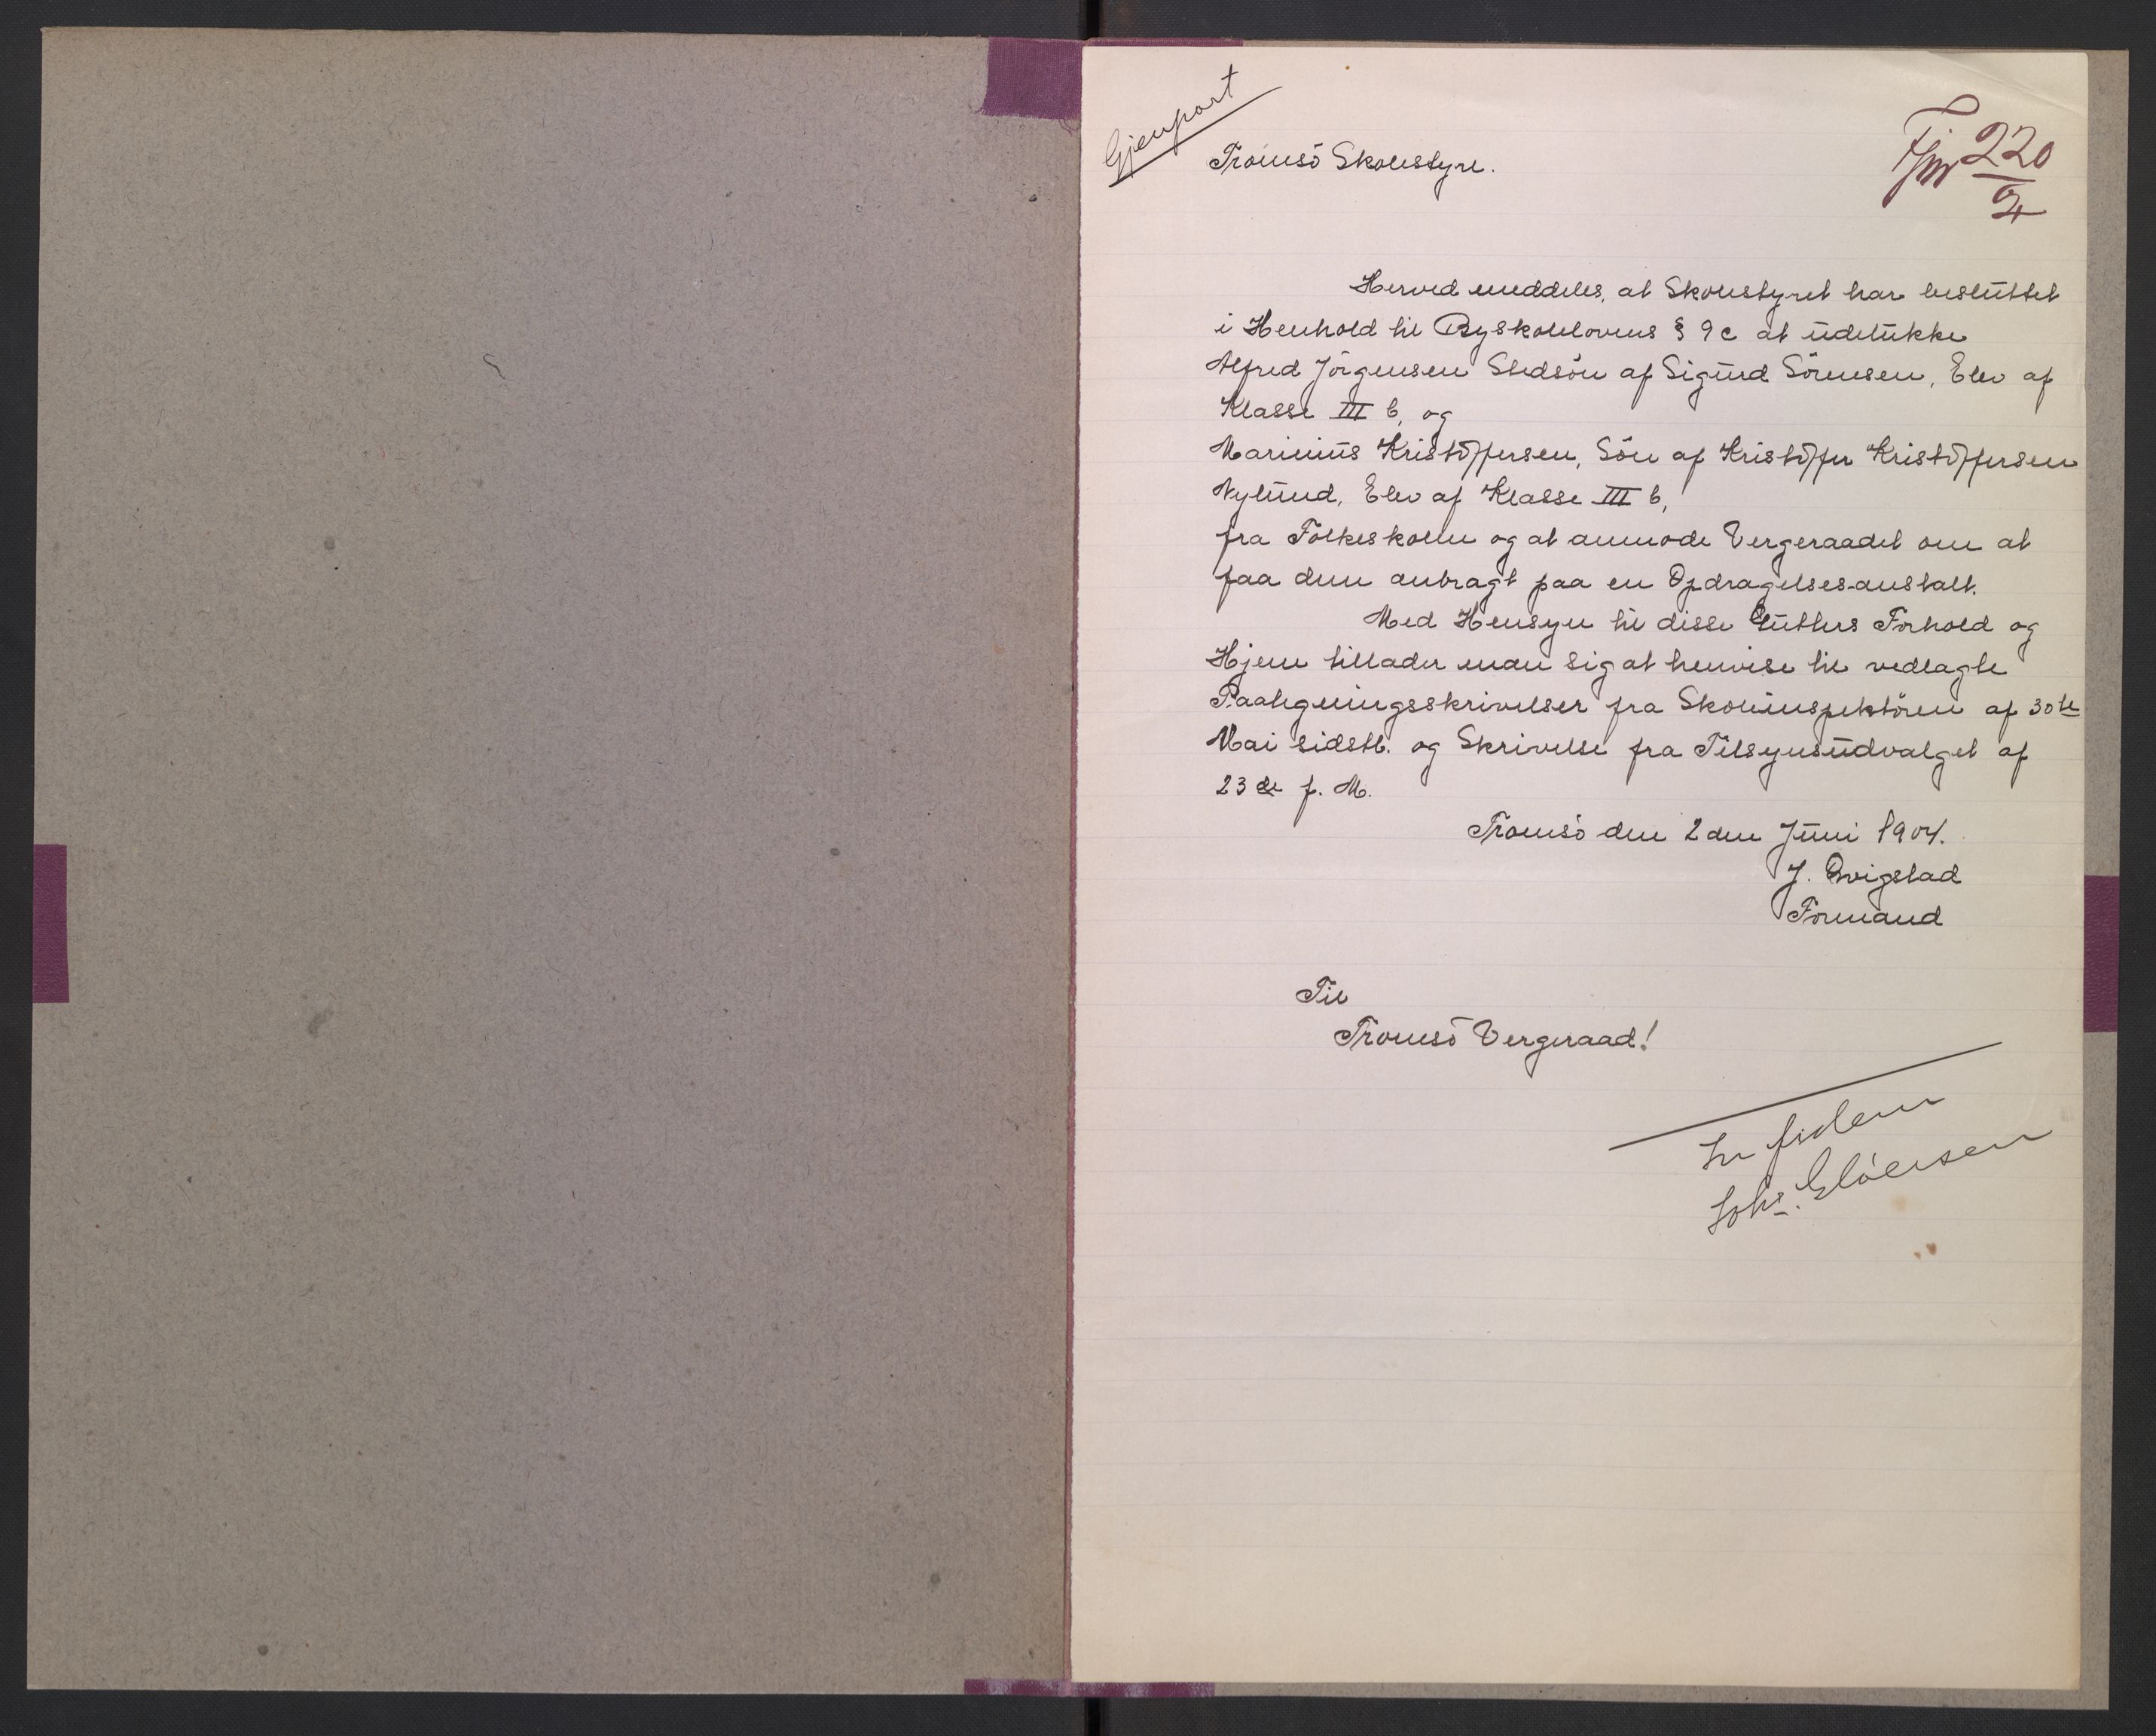 Gjenpart
Tromsö Skolestyre.
Fjm 220
4
Herved meddeles, at Skolestyret har besluttet
i Henhold til Byskolelovens § 9 c at udelukke
Alfred Jörgensen Stedsön af Sigurd Sörensen, Elev af
Klasse III b, og
Marinius Kristoffersen, Sön af Kristoffer Kristoffersen
Nylund, Elev af Klasse III b,
fra Folkeskolen og at anmode Vergeraadet om at
faa dem anbragt paa en Opdragelsesanstalt.
Med Hensyn til disse Gutters Forhold og
Hjem tillader man sig at henvise til vedlagte
Paategningsskrivelser fra Skoleinspektören af 30te
Mai sidstl. og Skrivelse fra Tilsynsudvalget af
23de f. M.
Tromsö den 2den Juni 1904.
J. Qvigstad
Formand
Til
Tromsö Vergeraad!
In fidem
Johs. Glöersen